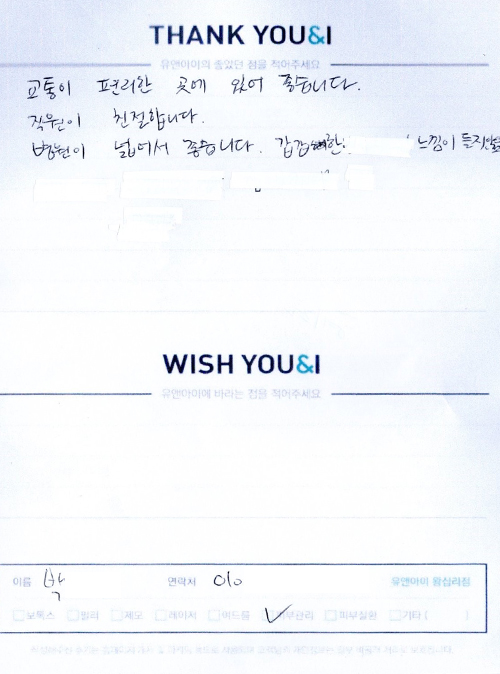 THANK YOU&I
유앤아이의 좋았던 점을 적어주세요
교통이 편리한 곳에 있어 좋습니다.
직원이 친절합니다.
병원이 넓어서 좋습니다. 갑갑한 느낌이 들지않
WISH YOU&I
유앤아이에 바라는 점을 적어주세요
이름 박 연락처 010 유앤아이 왕십리점
보톡스 필러 제모 레이저 여드름 피부관리 피부질환 기타 ( )